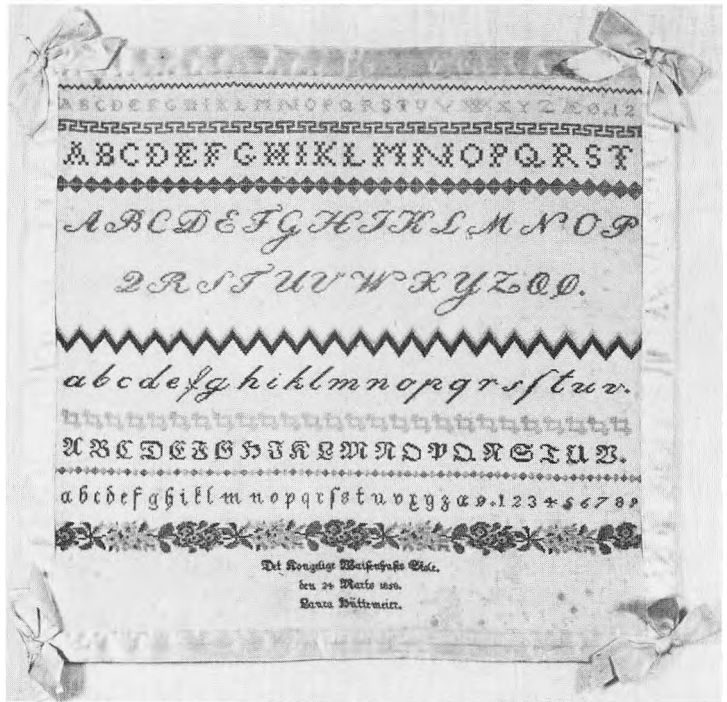 A B C D E F G H I K L M N O P Q R S T U V W X Y Z Æ Ø . 1 2
A B C D E F G H I K L M N O P Q R S T
A B C D E F G H I K L M N O P
Q R S T U V W X Y Z Ø.
a b c d e f g h i k l m n o p q r s ſ t u v.
A B C D E F G H I K L M N O P Q R S T U V.
a b c d e f g h i k l m n o p q r ſ s t u v x y z æ ø . 1 2 3 4 5 6 7 8 9
Det Kongelige Waiſenhuſes Skole.
den 24 Marts
Laura Hüttemeier.